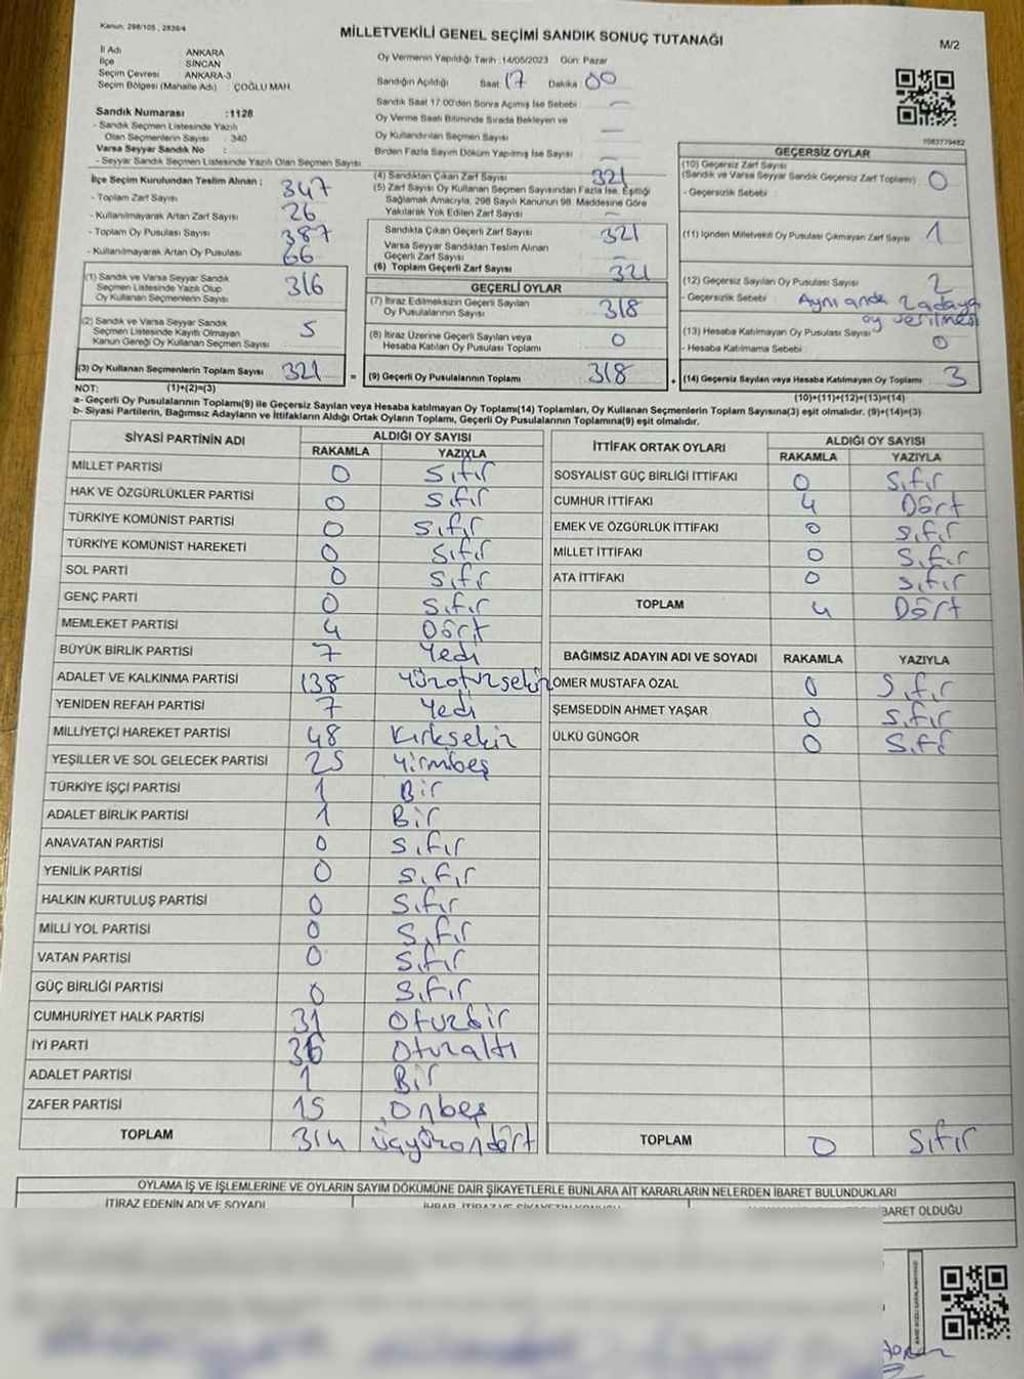 Kanun: 298/105, 2839/4
MİLLETVEKİLİ GENEL SEÇİMİ SANDIK SONUÇ TUTANAĞI
M/2
İl Adı ANKARA
İlçe SİNCAN
Seçim Çevresi ANKARA-3
Seçim Bölgesi (Mahalle Adı) : ÇOĞLU MAH.
Oy Vermenin Yapıldığı Tarih :14/05/2023 Gün: Pazar
Sandığın Açıldığı Saat 17 Dakika 00
Sandık Saat 17:00'den Sonra Açılmış İse Sebebi —
Oy Verme Saati Bitiminde Sırada Bekleyen ve
Oy Kullandırılan Seçmen Sayısı —
Birden Fazla Sayım Döküm Yapılmış İse Sayısı —
Sandık Numarası :1128
- Sandık Seçmen Listesinde Yazılı
Olan Seçmenlerin Sayısı : 340
Varsa Seyyar Sandık No :
- Seyyar Sandık Seçmen Listesinde Yazılı Olan Seçmen Sayısı
İlçe Seçim Kurulundan Teslim Alınan :
- Toplam Zarf Sayısı 347
- Kullanılmayarak Artan Zarf Sayısı 26
- Toplam Oy Pusulası Sayısı 387
- Kullanılmayarak Artan Oy Pusulası 66
(1) Sandık ve Varsa Seyyar Sandık
Seçmen Listesinde Yazılı Olup
Oy Kullanan Seçmenlerin Sayısı 316
(2) Sandık ve Varsa Seyyar Sandık
Seçmen Listesinde Kayıtlı Olmayan
Kanun Gereği Oy Kullanan Seçmen Sayısı 5
(3) Oy Kullanan Seçmenlerin Toplam Sayısı 321
(4) Sandıktan Çıkan Zarf Sayısı 321
(5) Zarf Sayısı Oy Kullanan Seçmen Sayısından Fazla İse, Eşitliği
Sağlamak Amacıyla, 298 Sayılı Kanunun 98. Maddesine Göre
Yakılarak Yok Edilen Zarf Sayısı —
Sandıkta Çıkan Geçerli Zarf Sayısı 321
Varsa Seyyar Sandıktan Teslim Alınan
Geçerli Zarf Sayısı
(6) Toplam Geçerli Zarf Sayısı 321
GEÇERLİ OYLAR
(7) İtiraz Edilmeksizin Geçerli Sayılan
Oy Pusulalarının Sayısı 318
(8) İtiraz Üzerine Geçerli Sayılan veya
Hesaba Katılan Oy Pusulası Toplamı 0
= (9) Geçerli Oy Pusulalarının Toplamı 318 +
GEÇERSİZ OYLAR
(10) Geçersiz Zarf Sayısı
(Sandık ve Varsa Seyyar Sandık Geçersiz Zarf Toplamı) 0
- Geçersizlik Sebebi :
(11) İçinden Milletvekili Oy Pusulası Çıkmayan Zarf Sayısı 1
(12) Geçersiz Sayılan Oy Pusulası Sayısı 2
- Geçersizlik Sebebi : Aynı anda 2 adaya
oy verilmesi
(13) Hesaba Katılmayan Oy Pusulası Sayısı 0
- Hesaba Katılmama Sebebi :
(14) Geçersiz Sayılan veya Hesaba Katılmayan Oy Toplamı 3
NOT: (1)+(2)=(3)
(10)+(11)+(12)+(13)=(14)
a- Geçerli Oy Pusulalarının Toplamı(9) ile Geçersiz Sayılan veya Hesaba katılmayan Oy Toplamı(14) Toplamları, Oy Kullanan Seçmenlerin Toplam Sayısına(3) eşit olmalıdır. (9)+(14)=(3)
b- Siyasi Partilerin, Bağımsız Adayların ve İttifakların Aldığı Ortak Oyların Toplamı, Geçerli Oy Pusulalarının Toplamına(9) eşit olmalıdır.
SİYASİ PARTİNİN ADI
ALDIĞI OY SAYISI
RAKAMLA YAZIYLA
MİLLET PARTİSİ 0 Sıfır
HAK VE ÖZGÜRLÜKLER PARTİSİ 0 Sıfır
TÜRKİYE KOMÜNİST PARTİSİ 0 Sıfır
TÜRKİYE KOMÜNİST HAREKETİ 0 Sıfır
SOL PARTİ 0 Sıfır
GENÇ PARTİ 0 Sıfır
MEMLEKET PARTİSİ 4 Dört
BÜYÜK BİRLİK PARTİSİ 7 Yedi
ADALET VE KALKINMA PARTİSİ 138 Yüzotuzsekiz
YENİDEN REFAH PARTİSİ 7 Yedi
MİLLİYETÇİ HAREKET PARTİSİ 48 Kırksekiz
YEŞİLLER VE SOL GELECEK PARTİSİ 25 Yirmibeş
TÜRKİYE İŞÇİ PARTİSİ 1 Bir
ADALET BİRLİK PARTİSİ 1 Bir
ANAVATAN PARTİSİ 0 Sıfır
YENİLİK PARTİSİ 0 Sıfır
HALKIN KURTULUŞ PARTİSİ 0 Sıfır
MİLLİ YOL PARTİSİ 0 Sıfır
VATAN PARTİSİ 0 Sıfır
GÜÇ BİRLİĞİ PARTİSİ 0 Sıfır
CUMHURİYET HALK PARTİSİ 31 Otuzbir
İYİ PARTİ 36 Otuzaltı
ADALET PARTİSİ 1 Bir
ZAFER PARTİSİ 15 Onbeş
TOPLAM 314 Üçyüzondört
İTTİFAK ORTAK OYLARI
ALDIĞI OY SAYISI
RAKAMLA YAZIYLA
SOSYALİST GÜÇ BİRLİĞİ İTTİFAKI 0 Sıfır
CUMHUR İTTİFAKI 4 Dört
EMEK VE ÖZGÜRLÜK İTTİFAKI 0 Sıfır
MİLLET İTTİFAKI 0 Sıfır
ATA İTTİFAKI 0 Sıfır
TOPLAM 4 Dört
BAĞIMSIZ ADAYIN ADI VE SOYADI RAKAMLA YAZIYLA
ÖMER MUSTAFA ÖZAL 0 Sıfır
ŞEMSEDDİN AHMET YAŞAR 0 Sıfır
ÜLKÜ GÜNGÖR 0 Sıfır
TOPLAM 0 Sıfır
OYLAMA İŞ VE İŞLEMLERİNE VE OYLARIN SAYIM DÖKÜMÜNE DAİR ŞİKAYETLERLE BUNLARA AİT KARARLARIN NELERDEN İBARET BULUNDUKLARI
İTİRAZ EDENİN ADI VE SOYADI
BARET OLDUĞU